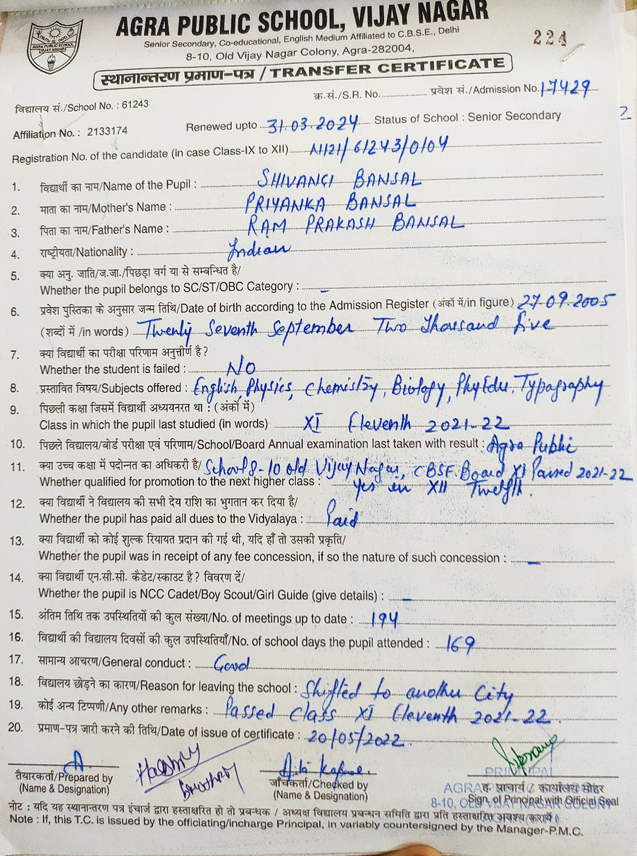 AGRA PUBLIC SCHOOL, VIJAY NAGAR
Senior Secondary, Co-educational, English Medium Affiliated to C.B.S.E., Delhi
8-10, Old Vijay Nagar Colony, Agra-282004,
224
स्थानान्तरण प्रमाण-पत्र / TRANSFER CERTIFICATE
क्र.सं./S.R. No. प्रवेश सं./Admission No. 17429
विद्यालय सं./School No. : 61243
Affiliation No. : 2133174 Renewed upto 31.03.2024 Status of School : Senior Secondary
2
Registration No. of the candidate (in case Class-IX to XII) N1121/61243/0104
1. विद्यार्थी का नाम/Name of the Pupil : SHIVANGI BANSAL
2. माता का नाम/Mother's Name : PRIYANKA BANSAL
3. पिता का नाम/Father's Name : RAM PRAKASH BANSAL
4. राष्ट्रीयता/Nationality : Indian
5. क्या अनु. जाति/ज.जा./पिछड़ा वर्ग या से सम्बन्धित है/
Whether the pupil belongs to SC/ST/OBC Category : –
6. प्रवेश पुस्तिका के अनुसार जन्म तिथि/Date of birth according to the Admission Register (अंकों में/in figure) 27.09.2005
(शब्दों में /in words) Twenty Seventh September Two Thousand five
7. क्या विद्यार्थी का परीक्षा परिणाम अनुत्तीर्ण है?
Whether the student is failed : NO
8. प्रस्तावित विषय/Subjects offered : English, Physics, Chemistry, Biology, PhyEdu, Typography
9. पिछली कक्षा जिसमें विद्यार्थी अध्ययनरत था : (अंकों में)
Class in which the pupil last studied (in words) XI Eleventh 2021-22
10. पिछले विद्यालय/बोर्ड परीक्षा एवं परिणाम/School/Board Annual examination last taken with result : Agra Public
11. क्या उच्च कक्षा में पदोन्नत का अधिकारी है/ School 8-10 old Vijay Nagar, CBSE Board XI Passed 2021-22
Whether qualified for promotion to the next higher class : Yes in XII Twelfth.
12. क्या विद्यार्थी ने विद्यालय की सभी देय राशि का भुगतान कर दिया है/
Whether the pupil has paid all dues to the Vidyalaya : Paid
13. क्या विद्यार्थी को कोई शुल्क रियायत प्रदान की गई थी, यदि हाँ तो उसकी प्रकृति/
Whether the pupil was in receipt of any fee concession, if so the nature of such concession : –
14. क्या विद्यार्थी एन.सी.सी. कैडेट/स्काउट है ? विवरण दें/
Whether the pupil is NCC Cadet/Boy Scout/Girl Guide (give details) : –
15. अंतिम तिथि तक उपस्थितियों की कुल संख्या/No. of meetings up to date : 194
16. विद्यार्थी की विद्यालय दिवसों की कुल उपस्थितियाँ/No. of school days the pupil attended : 169
17. सामान्य आचरण/General conduct : Good
18. विद्यालय छोड़ने का कारण/Reason for leaving the school : Shifted to another City
19. कोई अन्य टिप्पणी/Any other remarks : Passed Class XI Eleventh 2021-22.
20. प्रमाण-पत्र जारी करने की तिथि/Date of issue of certificate : 20/05/2022.
PRINCIPAL
तैयारकर्ता/Prepared by जाँचकर्ता/Checked by ह. प्राचार्य / कार्यालय मोहर
(Name & Designation) (Name & Designation) Sign. of Principal with Official Seal
नोट : यदि यह स्थानान्तरण पत्र इंचार्ज द्वारा हस्ताक्षरित हो तो प्रबन्धक / अध्यक्ष विद्यालय प्रबन्धन समिति द्वारा प्रति हस्ताक्षरित अवश्य करायें।
Note : If, this T.C. is issued by the officiating/incharge Principal, in variably countersigned by the Manager-P.M.C.